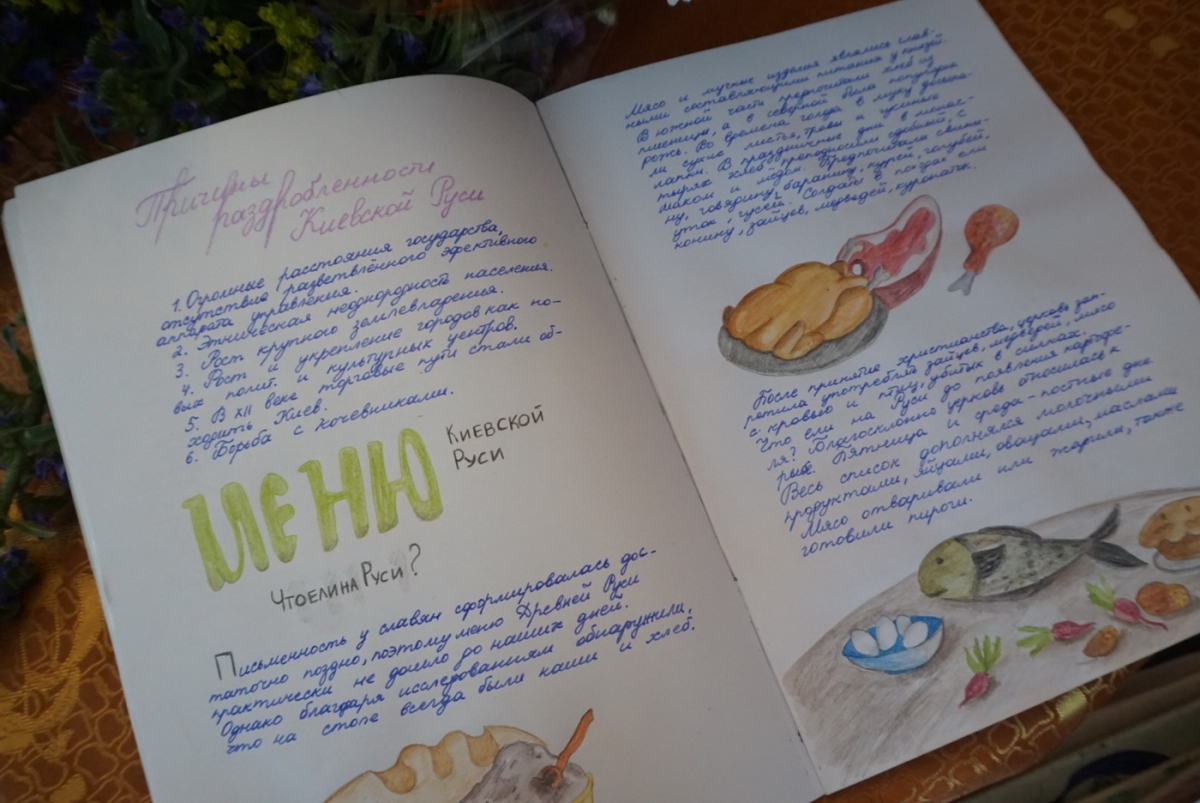 Причины
раздробленности
Киевской Руси
1. Огромные расстояния государства,
отсутствие разветвлённого эфективного
аппарата управления.
2. Этническая неоднородность населения.
3. Рост крупного землевладения.
4. Рост и укрепление городов как но-
вых полит. и культурных центров.
5. В XII веке торговые пути стали об-
ходить Киев.
6. Борьба с кочевниками.
МЕНЮ
Киевской
Руси
Что ели на Руси?
Письменность у славян сформировалась дос-
таточно поздно, поэтому меню Древней Руси
практически не дошло до наших дней.
Однако благодаря исследованиям обнаружили,
что на столе всегда были каши и хлеб.
Мясо и мучные изделия являлись глав-
ными составляющими питания у князей.
В южной части предпочитали хлеб из
пшеницы, а в северной была популярна
рожь. Во времена голода в муку добавля-
ли сухие листья, травы и гусиные
лапки. В праздничные дни в монас-
тырях хлеб преподносили сдобный, с
маком и мёдом. Предпочитали свини-
ну, говядину, баранину, курей, голубей,
уток, гусей. Солдаты в походах ели
конину, зайцев, медведей, куропаток.
После принятия христианства, церковь зап-
ретила употреблять зайцев, медведей, мясо
с кровью и птиц, убитых в силках.
Что ели на Руси до появления картофе-
ля? Благосклонно церковь относилась к
рыбе. Пятница и среда - постные дни
Весь список дополнялся молочными
продуктами, яйцами, овощами, маслами
Мясо отваривали или жарили, также
готовили пироги.